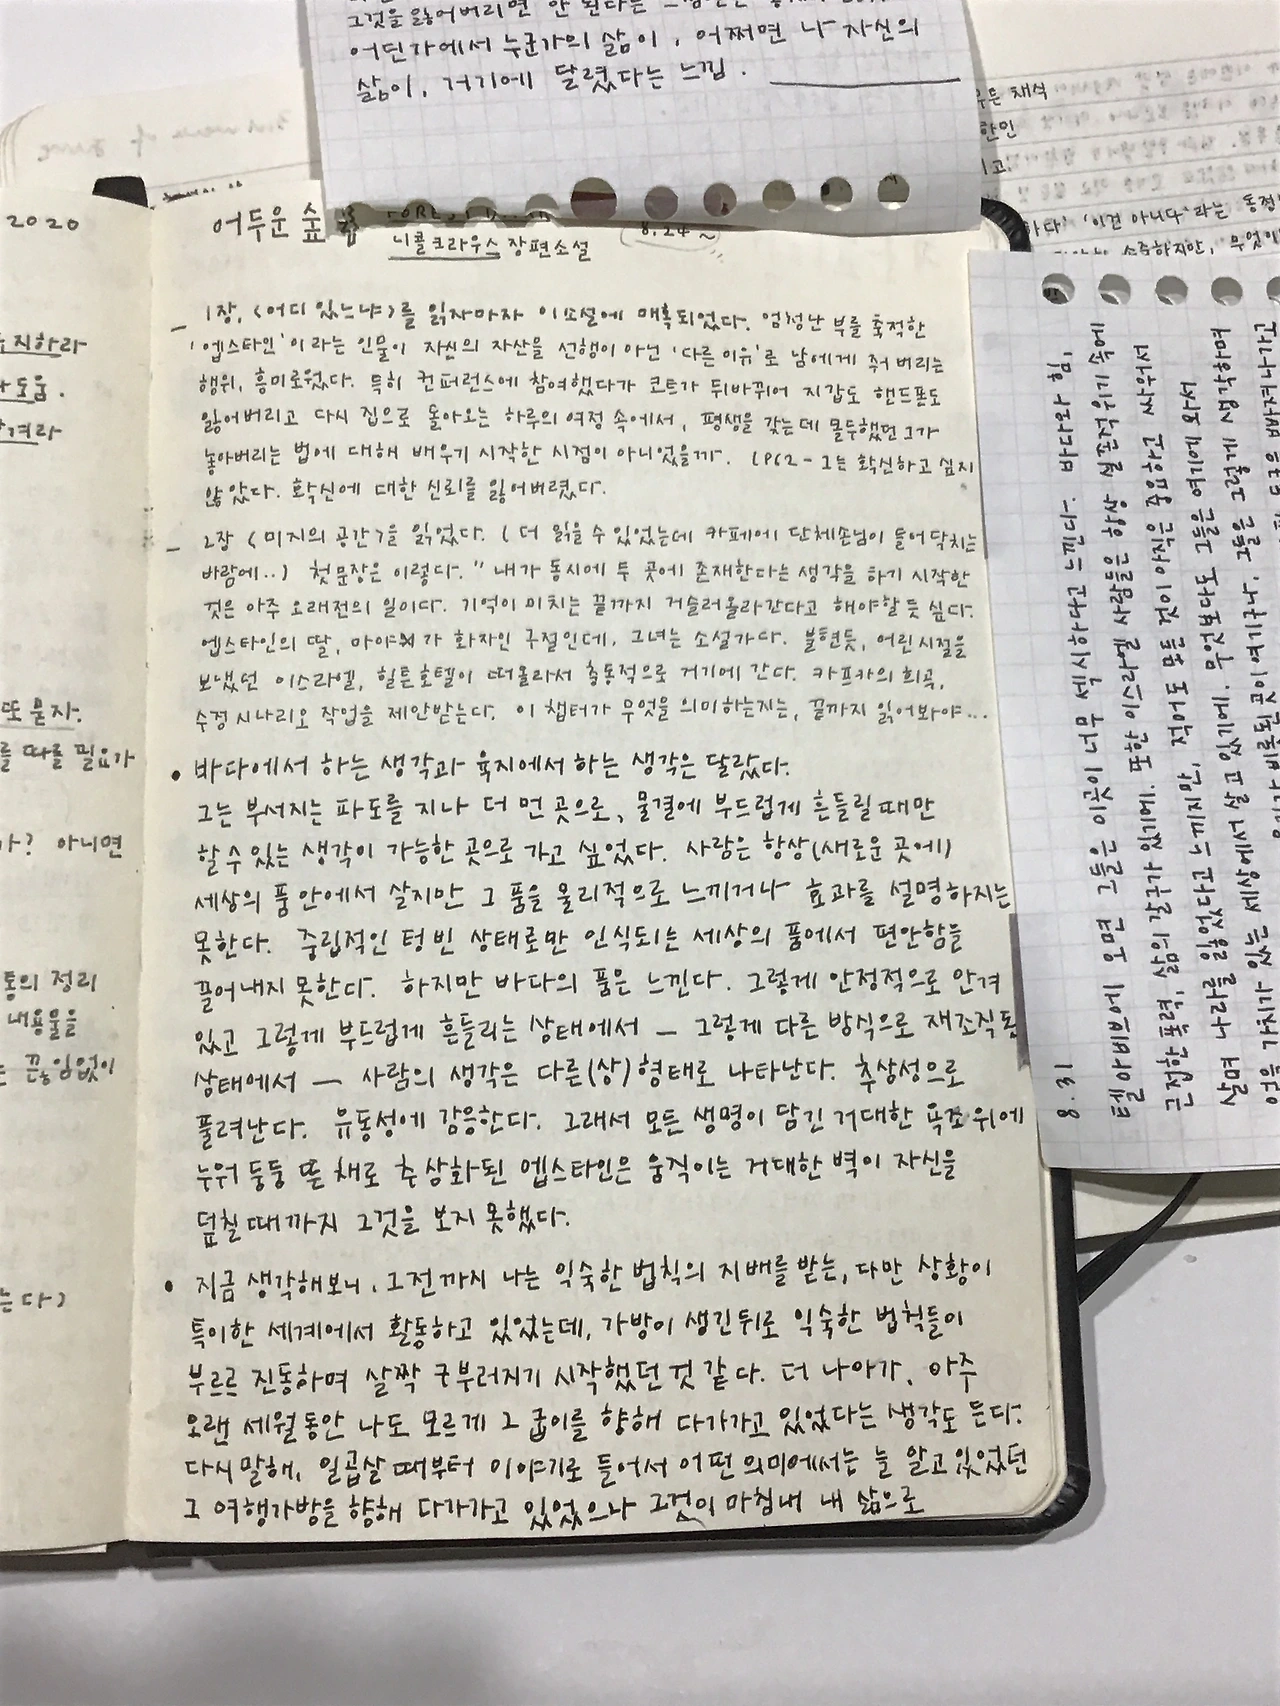 그것을 잃어버리면 안 된다는
어딘가에서 누군가의 삶이, 어쩌면 나 자신의
삶이, 거기에 달렸다는 느낌.
채식
한인
고
하다. '이건 아니다'라는 동정
소중하지만, 무엇이
2020
지하라
도움.
겨라
또 묻자.
를 따를 필요가
가? 아니면
통의 정리
내용물을
끊임없이
는다)
어두운 숲
8.24~
니콜 크라우스 장편소설
- 1장, <어디 있느냐>를 읽자마자 이 소설에 매혹되었다. 엄청난 부를 축적한
'엡스타인'이라는 인물이 자신의 자산을 선행이 아닌 '다른 이유'로 남에게 줘 버리는
행위, 흥미로웠다. 특히 컨퍼런스에 참여했다가 코트가 뒤바뀌어 지갑도 핸드폰도
잃어버리고 다시 집으로 돌아오는 하루의 여정 속에서, 평생을 갖는데 몰두했던 그가
놓아버리는 법에 대해 배우기 시작한 시점이 아니었을까. (P62 - 그는 확신하고 싶지
않았다. 확신에 대한 신뢰를 잃어버렸다.
- 2장 <미지의 공간>을 읽었다. (더 읽을 수 있었는데 카페에 단체손님이 들어닥치는
바람에..) 첫 문장은 이렇다. "내가 동시에 두 곳에 존재한다는 생각을 하기 시작한
것은 아주 오래전의 일이다. 기억이 미치는 끝까지 거슬러올라간다고 해야할 듯 싶다.
엡스타인의 딸, 마야가 화자인 구절인데, 그녀는 소설가다. 불현듯, 어린시절을
보냈던 이스라엘, 힐튼호텔이 떠올라서 충동적으로 거기에 간다. 카프카의 희곡,
수정 시나리오 작업을 제안받는다. 이 챕터가 무엇을 의미하는지는, 끝까지 읽어봐야...
• 바다에서 하는 생각과 육지에서 하는 생각은 달랐다.
그는 부서지는 파도를 지나 더 먼 곳으로, 물결에 부드럽게 흔들릴 때만
할 수 있는 생각이 가능한 곳으로 가고 싶었다. 사람은 항상(새로운 곳에)
세상의 품 안에서 살지만 그 품을 물리적으로 느끼거나 효과를 설명하지는
못한다. 중립적인 텅 빈 상태로만 인식되는 세상의 품에서 편안함을
끌어내지 못한다. 하지만 바다의 품은 느낀다. 그렇게 안정적으로 안겨
있고 그렇게 부드럽게 흔들리는 상태에서 — 그렇게 다른 방식으로 재조직된
상태에서 — 사람의 생각은 다른(상) 형태로 나타난다. 추상성으로
풀려난다. 유동성에 감응한다. 그래서 모든 생명이 담긴 거대한 욕조 위에
누워 둥둥 뜬 채로 추상화된 엡스타인은 움직이는 거대한 벽이 자신을
덮칠 때까지 그것을 보지 못했다.
• 지금 생각해보니, 그전까지 나는 익숙한 법칙의 지배를 받는, 다만 상황이
특이한 세계에서 활동하고 있었는데, 가방이 생긴 뒤로 익숙한 법칙들이
부르르 진동하며 살짝 구부러지기 시작했던 것 같다. 더 나아가, 아주
오랜 세월동안 나도 모르게 그 굽이를 향해 다가가고 있었다는 생각도 든다.
다시 말해, 일곱살 때부터 이야기로 들어서 어떤 의미에서는 늘 알고 있었던
그 여행가방을 향해 다가가고 있었으나 그것이 마침내 내 삶으로
8.31
텔아비브에 오면 그들은 이곳이 너무 섹시하다고 느낀다. 바다와 힘,
근접한 폭력, 삶의 갈구가 있기에. 또한 이스라엘 사람들은 항상 실존적 위기 속에